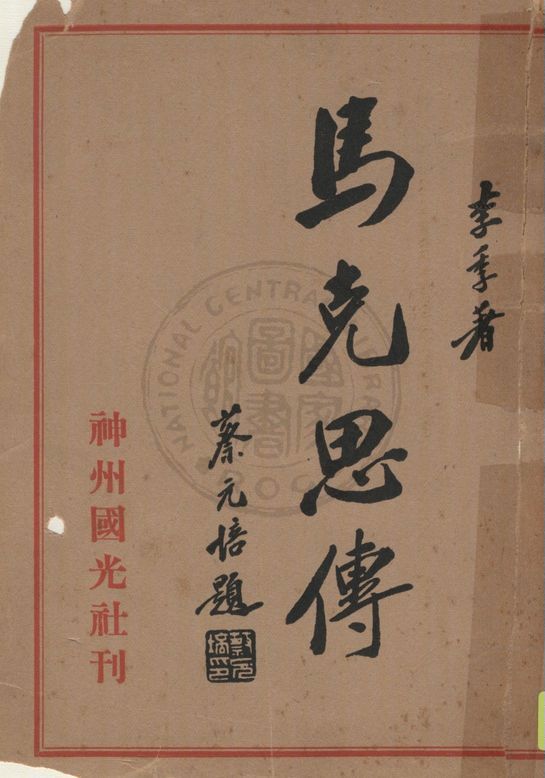 李季著
馬克思傳
蔡元培題
蔡元培印
神州國光社刊
NATIONAL CENTRAL LIBRARY
國家圖書館